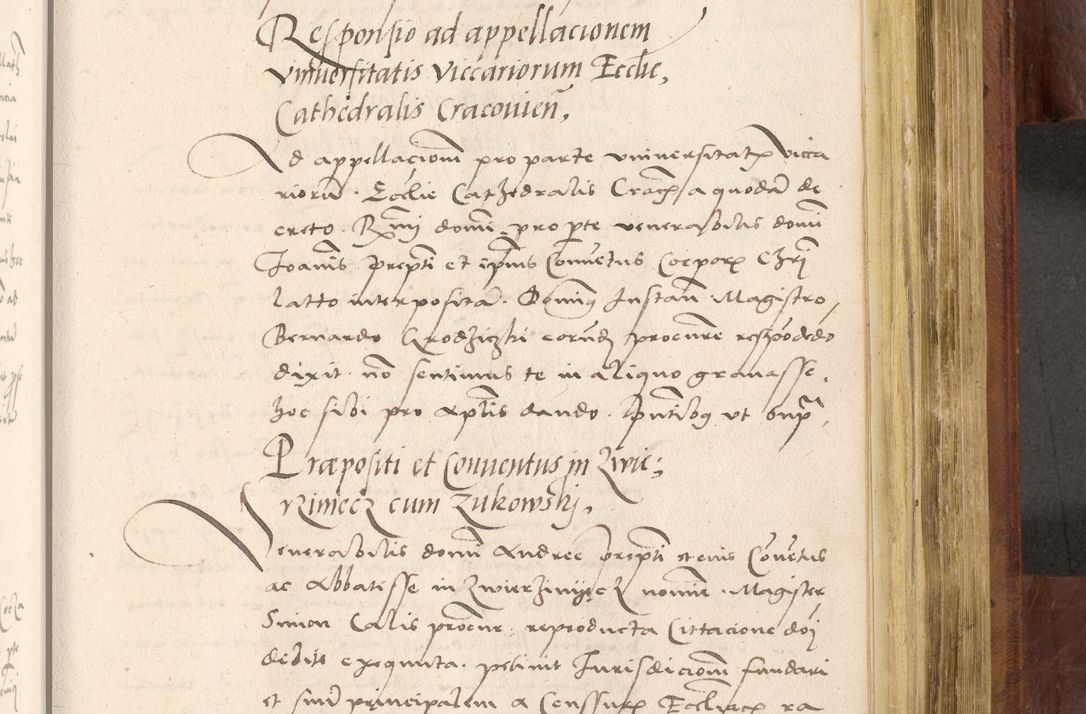 Responsio ad appellacionem
vniuersitatis viccariorum Ecclie,
Cathedralis Cracouien,
Ad appellacionem pro parte vniuersitatis vicca
riorum Ecclie Cathedralis Cracovien a quodam de
creto Rmi domini pro parte venerabilis domini
Joannis prepti et ipius Conuentus Corporis Chri
latto interposita. Dominus Instan Magistro
Bernardo Grodziczki eorund procuratore respondendo
dixit non sentimus te in aliquo grauasse
hoc sibi pro Aplis dando. Pntibus vt supra
Præpositi et Conuentus in Zwie;
rzimecz cum Zukowskj,
Venerabilis domini Andree prepti et eius Conuentus
ac Abbatisse in Zwierzinijecz nomine Magister
Simon Calis procur reproducta Cittacione doj
debite exequuta. petiuit Jurisdicionem fundari
et super principalem a Censsuris Ecclecis ra